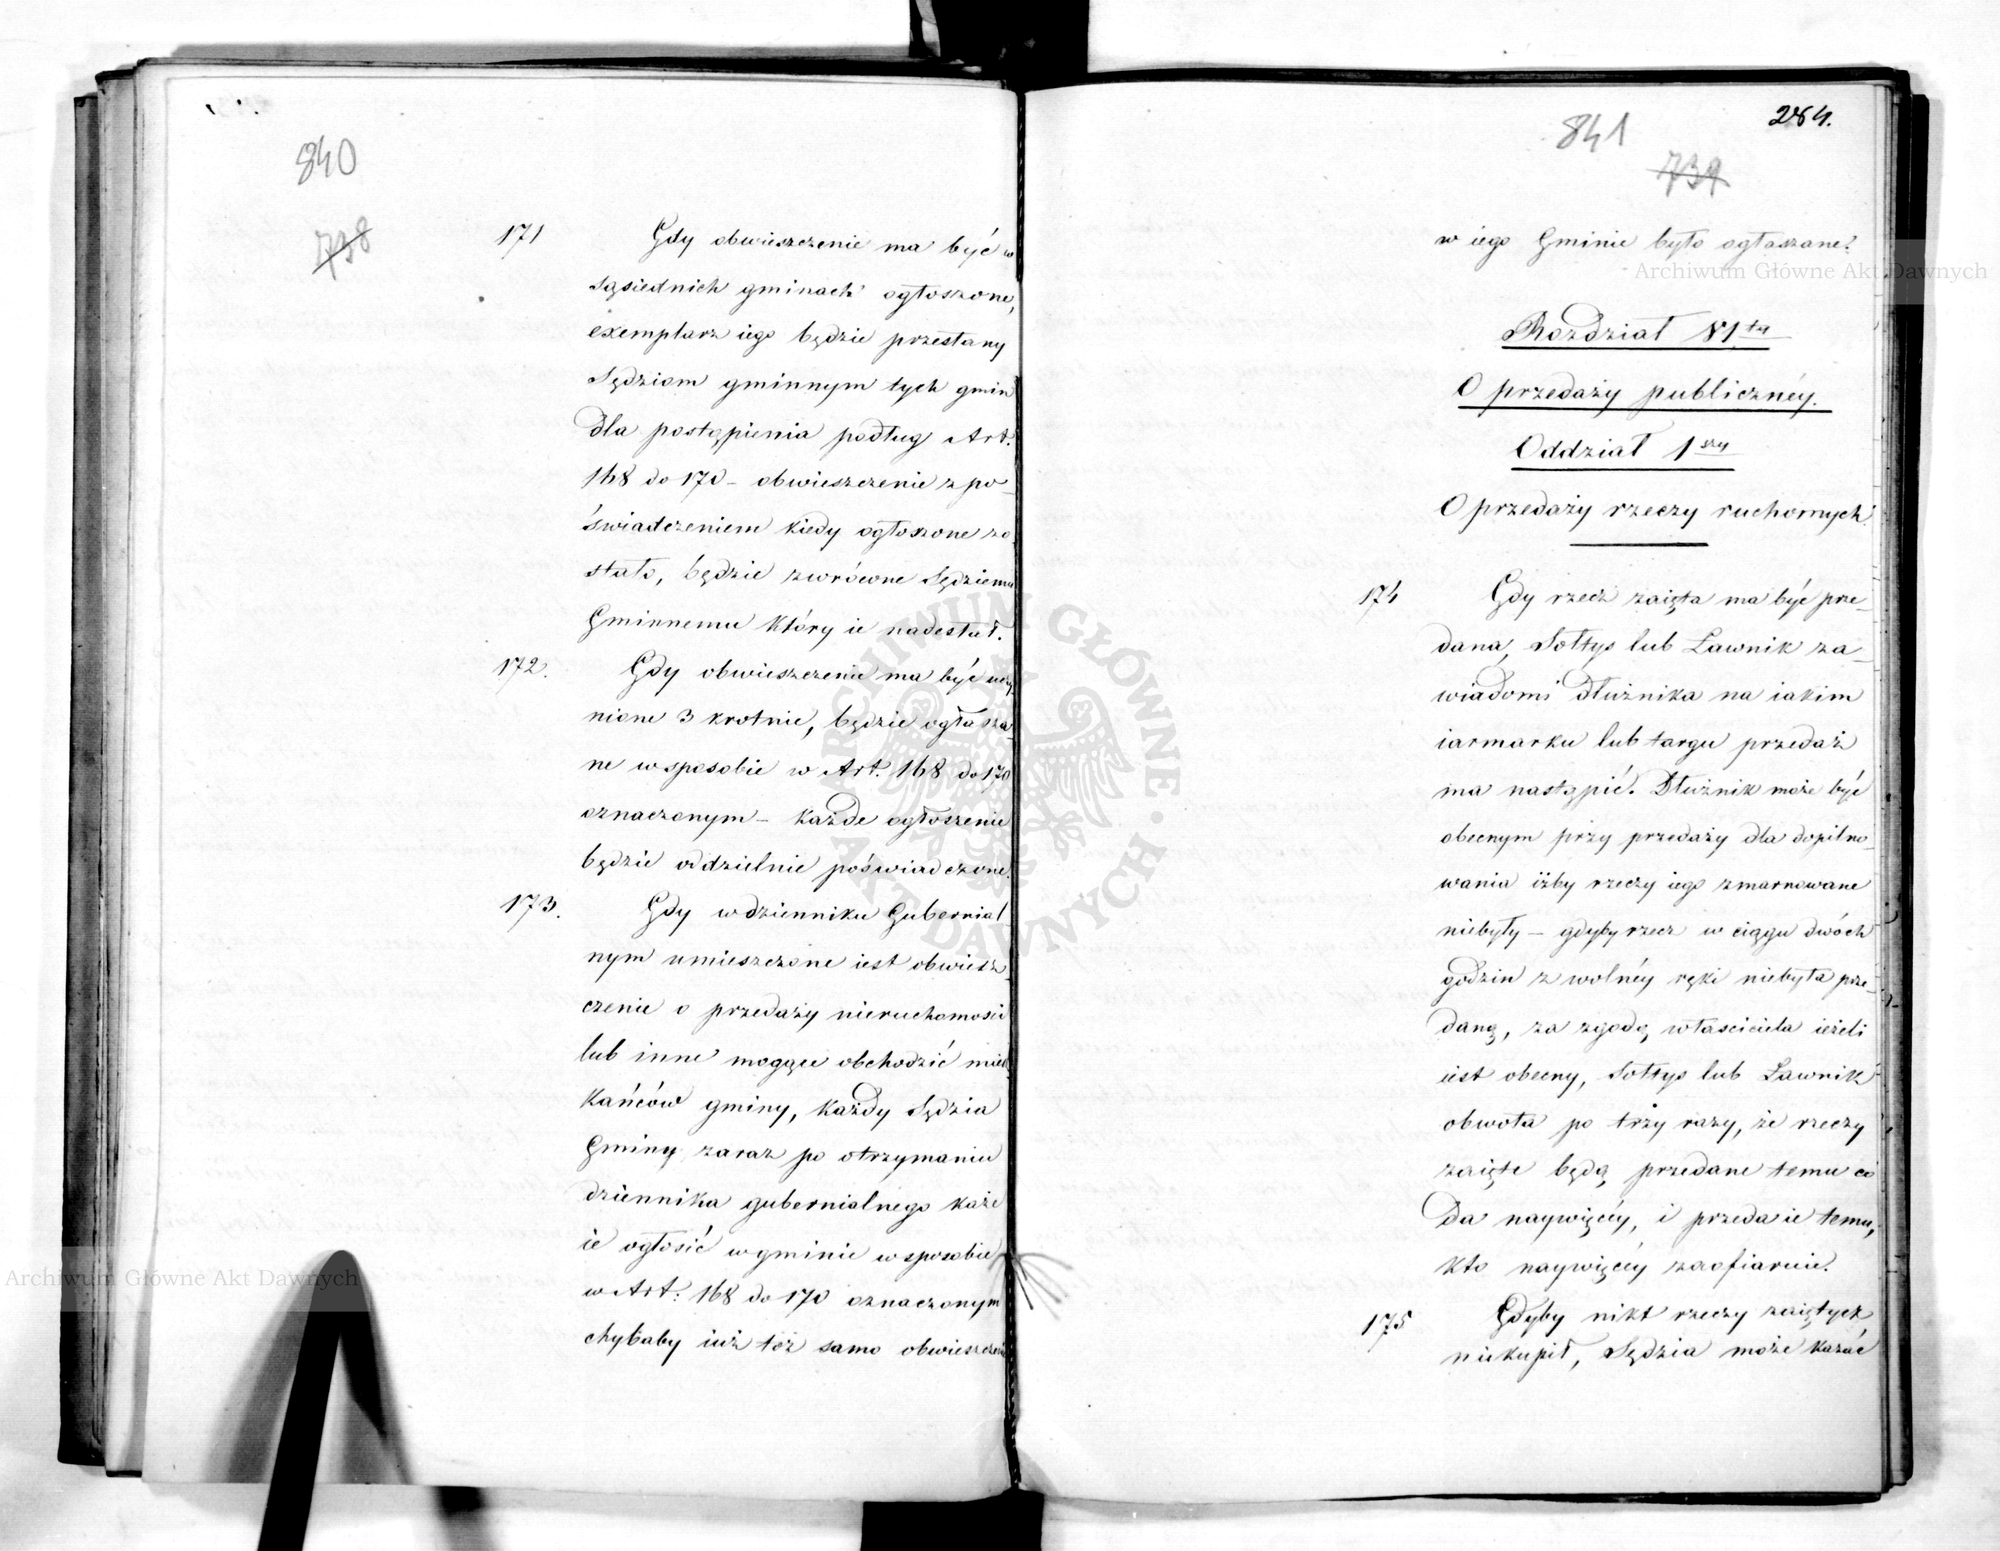 840
738
171 Gdy obwieszczenie ma być w
sąsiednich gminach ogłoszone,
exemplarz iego będzie przesłany
Sędziom gminnym tych gmin
dla postąpienia podług Art.
168 do 170 – obwieszczenie z po-
świadczeniem kiedy ogłoszone zo
stało, będzie zwrócone Sędziemu
Gminnemu który ie nadesłał.
172. Gdy obwieszczenie ma być uczy
nione 3 krotnie, będzie ogłasza-
ne w sposobie w Art. 168 do 170
oznaczonym – każde ogłoszenie
będzie oddzielnie poświadczone.
173. Gdy w dzienniku Gubernial
nym umieszczone iest obwiesz-
czenie o przedaży nieruchomości
lub inne mogące obchodzić miesz
kańców gminy, każdy Sędzia
Gminy zaraz po otrzymaniu
dziennika gubernialnego każe
ie ogłosić w gminie w sposobie
w Art: 168 do 170 oznaczonym
chybaby iuż toż samo obwieszczenie
284.
841
739
w iego Gminie było ogłaszane.
Rozdział
O przedaży publicznéy.
Oddział 1szy
O przedaży rzeczy ruchomych.
174 Gdy rzecz zaięta ma być prze-
dana, Sołtys lub Ławnik za-
wiadomi dłużnika na iakim
iarmarku lub targu przedaż
ma nastąpić. Dłużnik może być
obecnym przy przedaży dla dopilno
wania iżby rzeczy iego zmarnowane
niebyły – gdyby rzecz w ciągu dwóch
godzin z wolnéy ręki niebyła prze-
daną, za zgodą właściciela ieżeli
iest obecny, Sołtys lub Ławnik
obwoła po trzy razy, że rzeczy
zaięte będą przedane temu co
da naywięcéy, i przedaie temu,
kto naywięcéy zaofiaruie.
175 Gdyby nikt rzeczy zaiętych
niekupił, Sędzia może kazać
Archiwum Główne Akt Dawnych
Archiwum Główne Akt Dawnych
ARCHIWUM GŁÓWNE AKT DAWNYCH